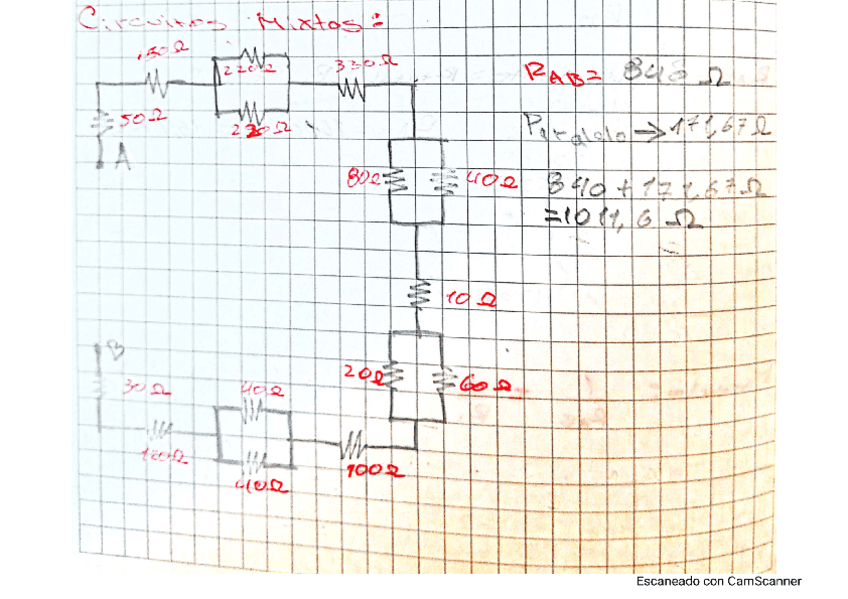 Circuitos Mixtos:
150Ω
220Ω
330Ω
50Ω
220Ω
A
80Ω
40Ω
10Ω
B
30Ω
40Ω
20Ω
60Ω
100Ω
40Ω
100Ω
RAB= 840 Ω
Paralelo → 171,67Ω
840 + 171,67Ω
=1011,6 Ω
Escaneado con CamScanner